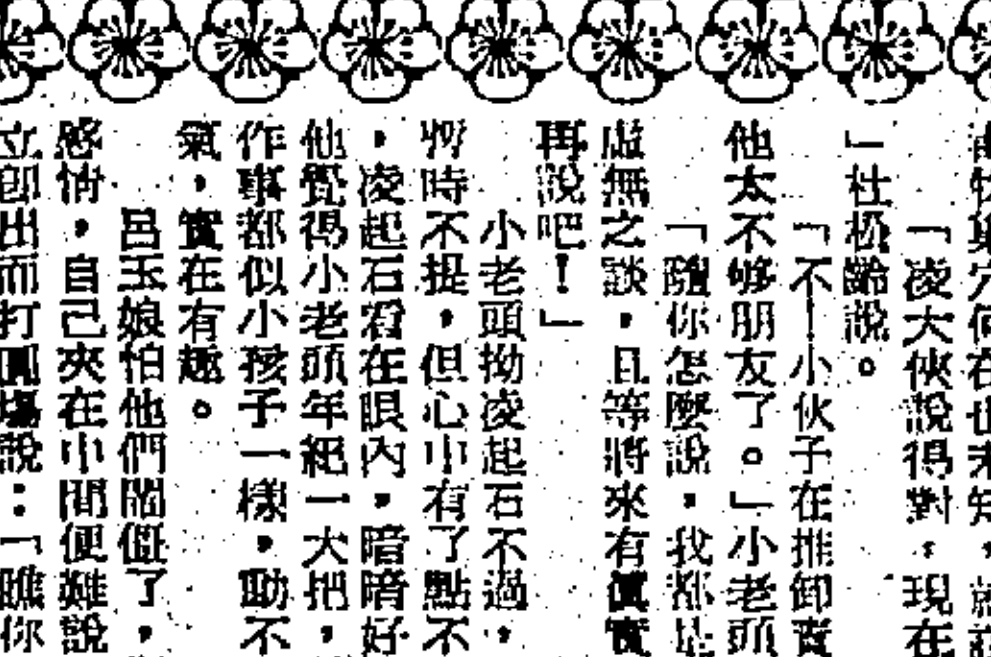 「凌大俠說得對,現在
」杜松齡說。
「不—小伙子在推卸責
他太不够朋友了。」小老頭
「隨你怎麼說,我都是
虛無之談,且等將來有眞實
再說吧!」
小老頭拗凌起石不過,
暫時不提,但心中有了點不
,凌起石看在眼內,暗暗好
他覺得小老頭年紀一大把,
作事都似小孩子一樣,動不
氣,實在有趣。
呂玉娘怕他們鬧僵了,
感情,自己夾在中間便難說
立卽出而打圓塲說:「瞧你